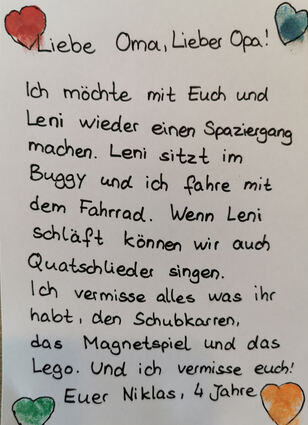 Liebe Oma, Lieber Opa!
Ich möchte mit Euch und
Leni wieder einen Spaziergang
machen. Leni sitzt im
Buggy und ich fahre mit
dem Fahrrad. Wenn Leni
schläft können wir auch
Quatschlieder singen.
Ich vermisse alles was ihr
habt, den Schubkarren,
das Magnetspiel und das
Lego. Und ich vermisse euch!
Euer Niklas, 4 Jahre